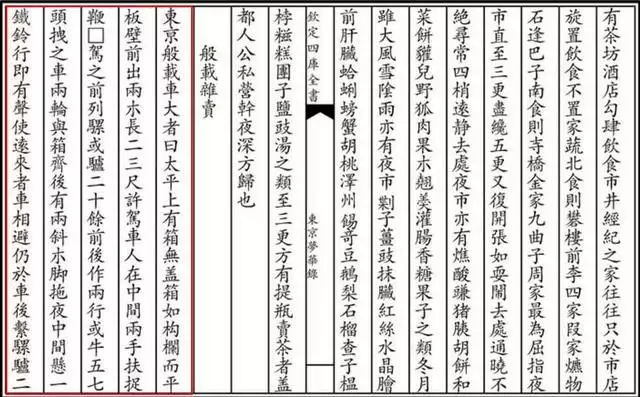 有茶坊酒店勾肆飲食市井經紀之家往往只於市店
旋置飲食不置家蔬北食則攀樓前李四家段家爊物
石逢巴子南食則寺橋金家九曲子周家最為屈指夜
市直至三更盡纔五更又復開張如耍鬧去處通曉不
絕尋常四梢遠靜去處夜市亦有燋酸豏猪胰胡餅和
菜餅獾兒野狐肉果木翹羹灌腸香糖果子之類冬月
雖大風雪陰雨亦有夜市子薑豉抹臟紅絲水晶膾
前肝臟蛤蜊螃蟹胡桃澤州餳奇豆鵝梨石榴查子榲
欽定四庫全書
東京夢華錄
桲糍糕團子鹽豉湯之類至三更方有提瓶賣茶者蓋
都人公私營幹夜深方歸也
般載雜賣
東京般載車大者曰太平上有箱無蓋箱如构欄而平
板壁前出兩木長二三尺許駕車人在中間兩手扶捉
鞭□駕之前列騾或驢二十餘前後作兩行或牛五七
頭拽之車兩輪與箱齊後有兩斜木脚拖夜中間懸一
鐵鈴行即有聲使遠來者車相避仍於車後繫騾驢二